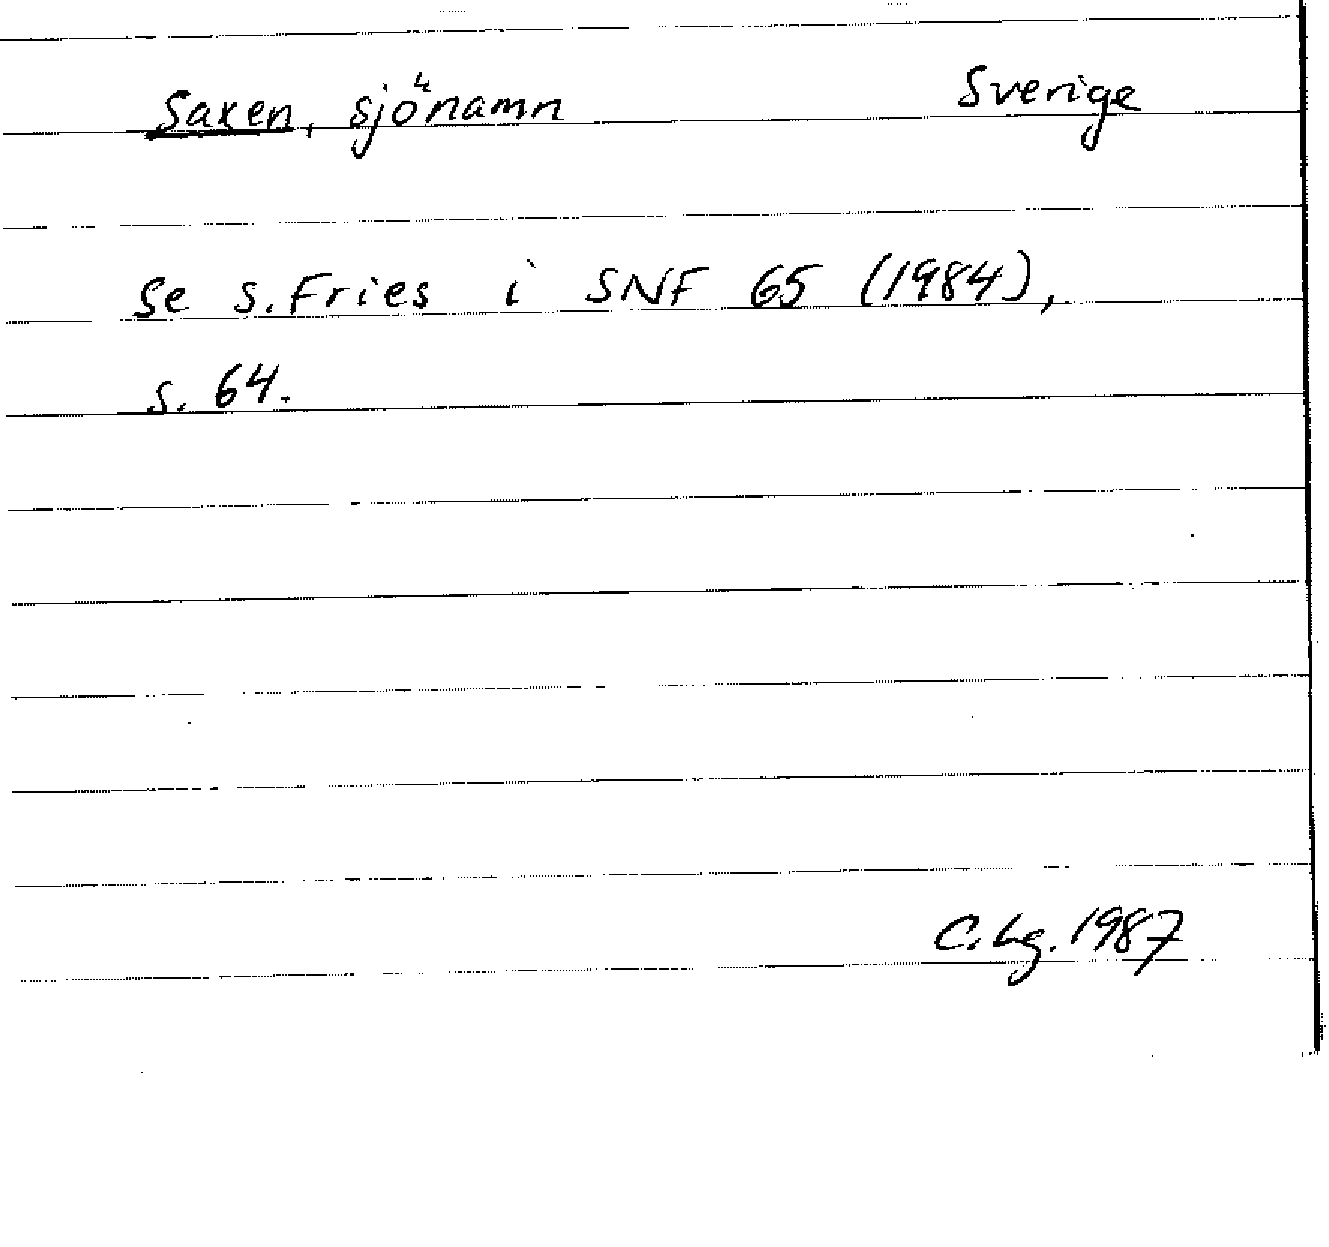 Saxen, sjönamn Sverige
Se S. Fries i SNF 65 (1984),
s. 64.
C. Lg. 1987